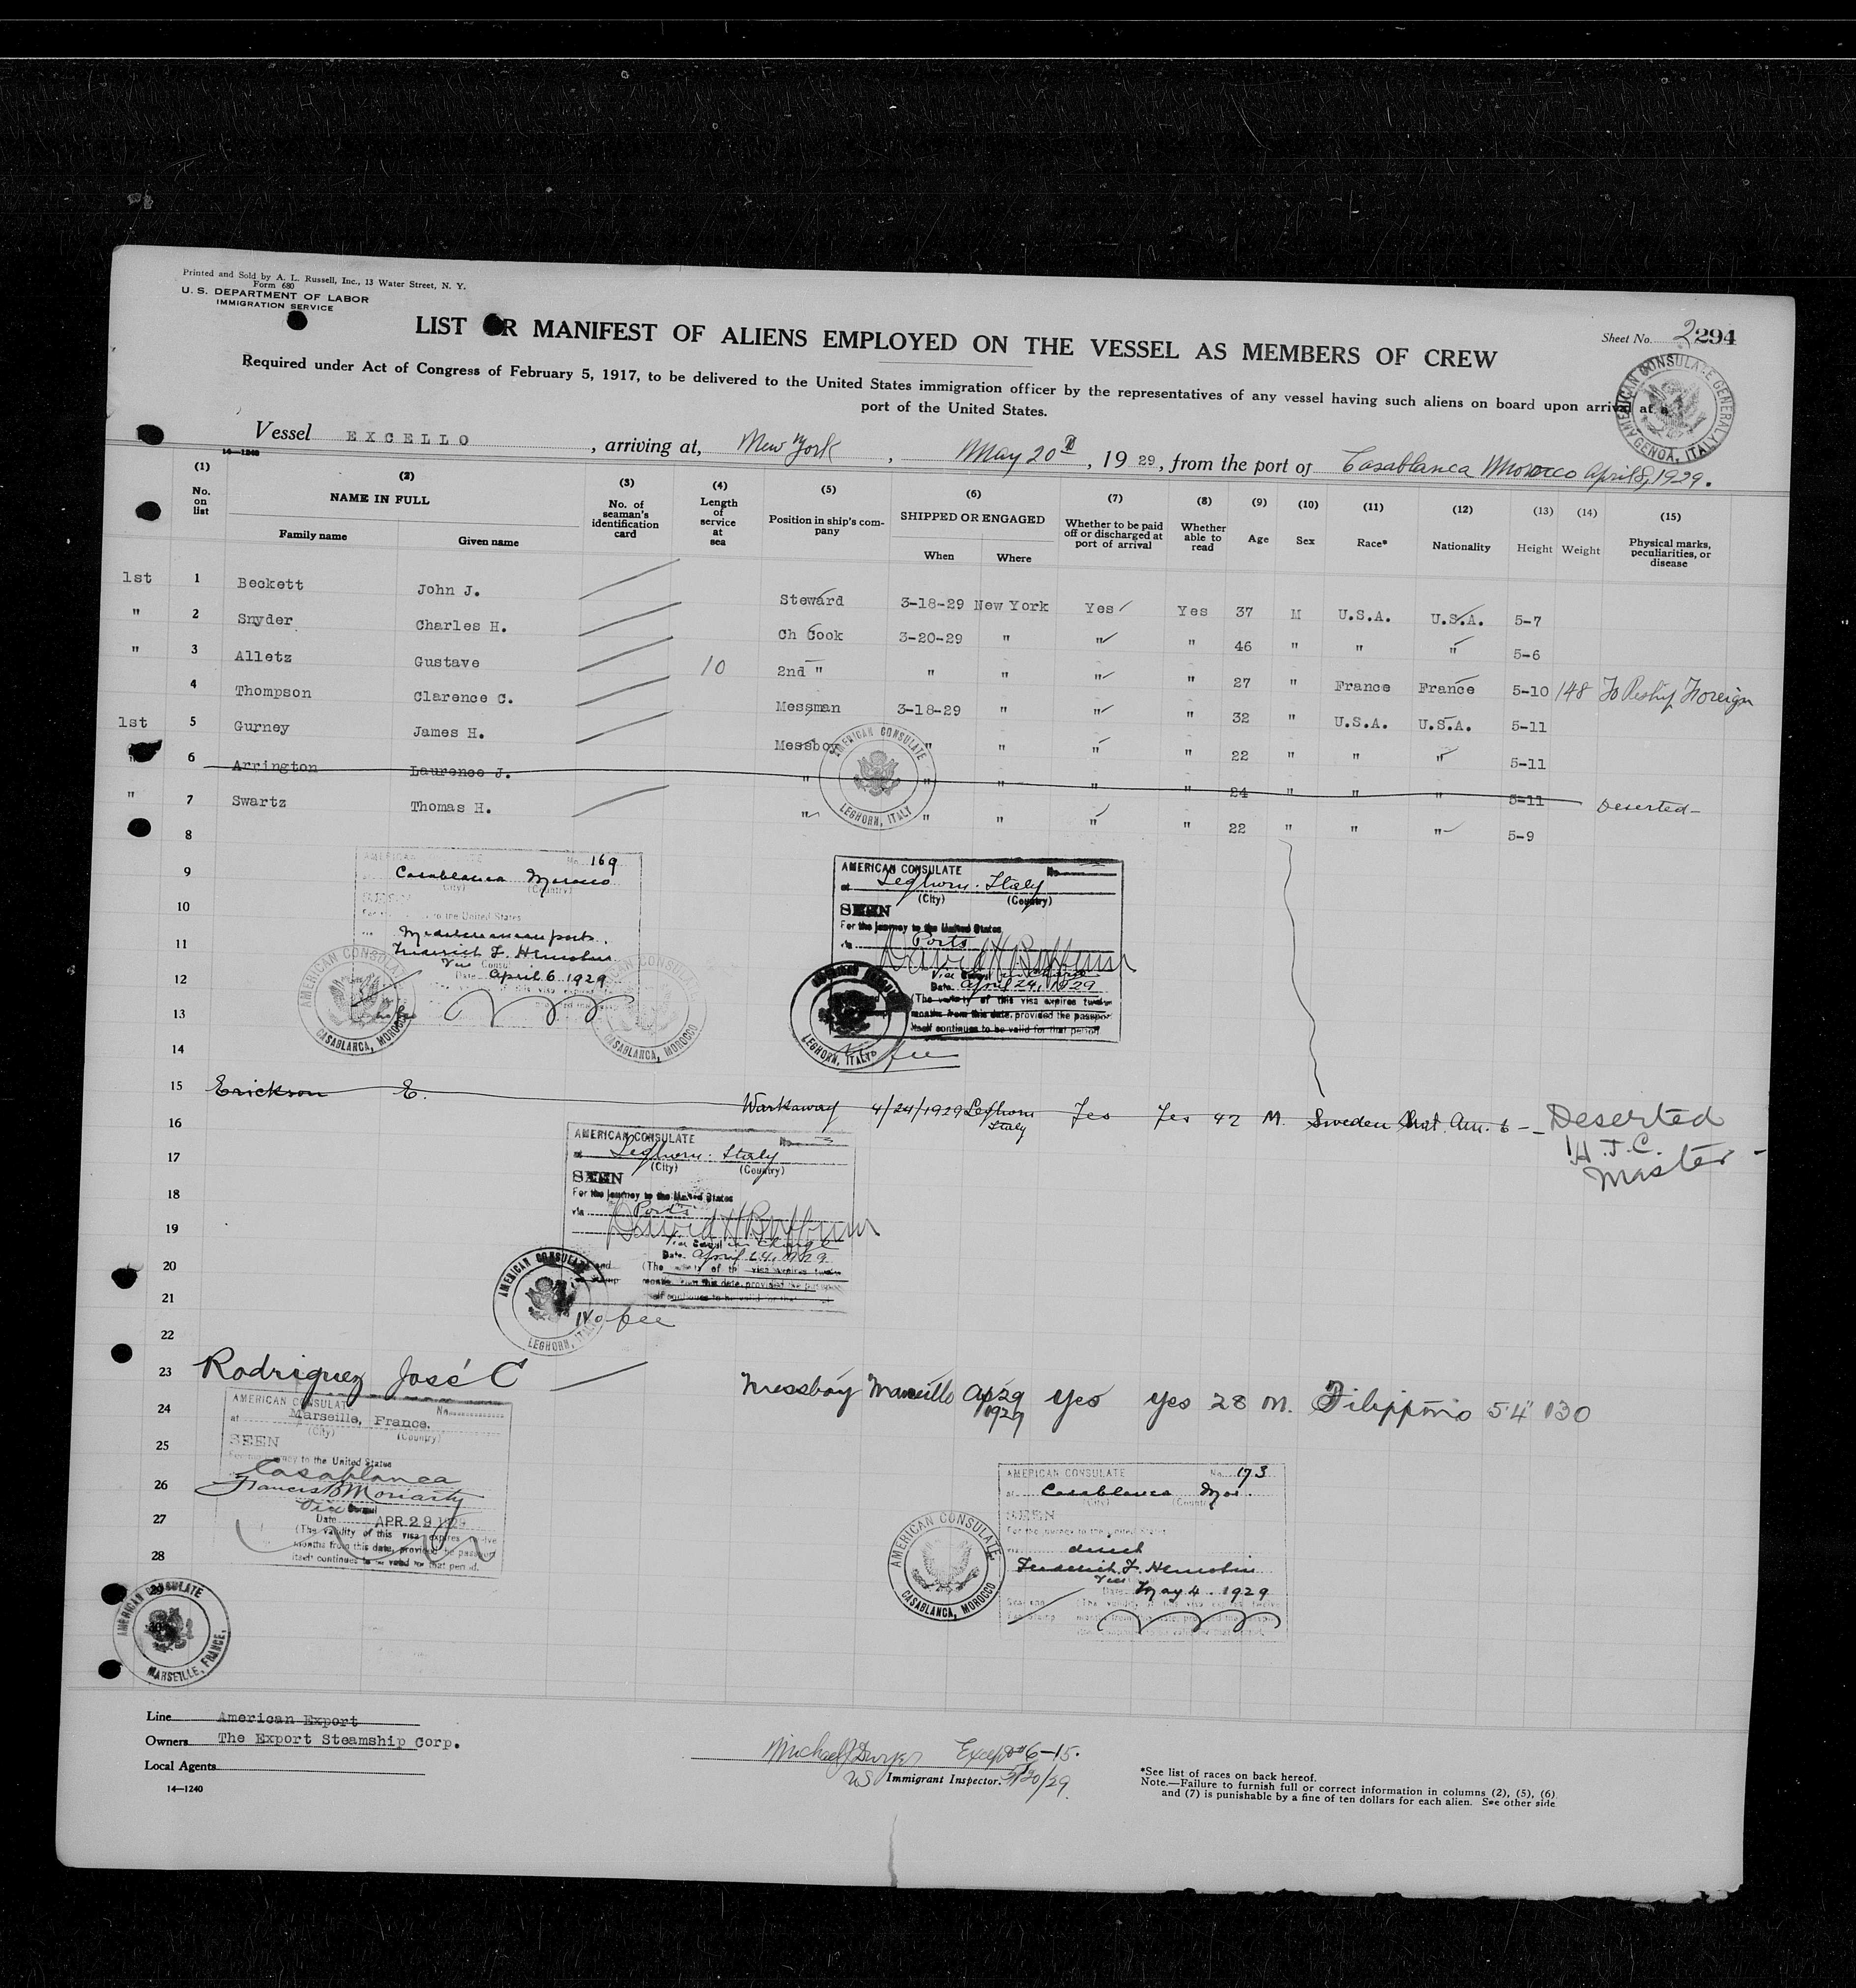 Printed and Sold by A. L. Russell, Inc., 13 Water Street, N. Y.
Form 680
U. S. DEPARTMENT OF LABOR
IMMIGRATION SERVICE
LIST OR MANIFEST OF ALIENS EMPLOYED ON THE VESSEL AS MEMBERS OF CREW
Sheet No. 2 294
Required under Act of Congress of February 5, 1917, to be delivered to the United States immigration officer by the representatives of any vessel having such aliens on board upon arrival at a
port of the United States.
AMERICAN CONSULATE GENERAL GENOA, ITALY
Vessel EXCELLO, arriving at, New York, May 20th, 1929, from the port of Casablanca Morocco April 8, 1929.
14—1240
(1) (2) (3) (4) (5) (6) (7) (8) (9) (10) (11) (12) (13) (14) (15)
No. on list
NAME IN FULL
Family name Given name
No. of seaman's identification card
Length of service at sea
Position in ship's company
SHIPPED OR ENGAGED
When Where
Whether to be paid off or discharged at port of arrival
Whether able to read
Age Sex Race* Nationality Height Weight
Physical marks, peculiarities, or disease
1st 1 Beckett John J. Steward 3-18-29 New York Yes Yes 37 M U.S.A. U.S.A. 5-7
" 2 Snyder Charles H. Ch Cook 3-20-29 " " " 46 " " " 5-6
" 3 Alletz Gustave 10 2nd " " " " " 27 " France France 5-10 148 To Reship Foreign
4 Thompson Clarence C. Messman 3-18-29 " " " 32 " U.S.A. U.S.A. 5-11
1st 5 Gurney James H. Messboy " " " " 22 " " " 5-11
" 6 Arrington Laurence J. " " " " " 24 " " " 5-11 Deserted-
" 7 Swartz Thomas H. " " " " " 22 " " " 5-9
AMERICAN CONSULATE LEGHORN, ITALY
8
9
10
11
12
13
14
AMERICAN CONSULATE
No. 169
Casablanca Morocco
(City) (Country)
SEEN
to the United States
Mediterranean ports.
Vice Consul
Date April 6 1929
AMERICAN CONSULATE CASABLANCA, MOROCCO
AMERICAN CONSULATE CASABLANCA, MOROCCO
AMERICAN CONSULATE
No.
at Leghorn. Italy
(City) (Country)
SEEN
For the journey to the United States
via Ports
Vice Consul in charge
Date April 24, 1929
(The validity of this visa expires twelve
months from this date, provided the passport
itself continues to be valid for that period
LEGHORN, ITALY
No fee
15 Erickson E. Workaway 4/24/1929 Leghorn Italy Yes Yes 42 M. Sweden Nat. Am. 6 - Deserted
H.J.C.
Master -
16
17
18
19
20
21
22
AMERICAN CONSULATE
No.
at Leghorn. Italy
(City) (Country)
SEEN
For the journey to the United States
via Ports
Vice Consul in charge
Date April 24, 1929
(The validity of this visa expires twelve
months from this date, provided the passport
itself continues to be valid for that
AMERICAN CONSULATE LEGHORN, ITALY
No fee
23 Rodriguez José C Messboy Marseille Ap 29 1929 yes yes 28 M. Filippino 5'4" 130
24
25
26
27
28
29
30
AMERICAN CONSULATE
No.
at Marseille, France.
(City) (Country)
SEEN
For the journey to the United States
Casablanca
Francis B Moriarty
Vice Consul
Date APR 29 1929
(The validity of this visa expires twelve
months from this date, provided the passport
itself continues to be valid for that period.
AMERICAN CONSULATE MARSEILLE, FRANCE,
AMERICAN CONSULATE
No. 173
at Casablanca Mor.
(City) (Country)
SEEN
For the journey to the United States
via direct
Vice
Date May 4. 1929
AMERICAN CONSULATE CASABLANCA, MOROCCO
Line American Export
Owners The Export Steamship Corp.
Local Agents
14—1240
Michael J Dwyer Except #6-15.
US Immigrant Inspector. 5/20/29.
*See list of races on back hereof.
Note.—Failure to furnish full or correct information in columns (2), (5), (6)
and (7) is punishable by a fine of ten dollars for each alien. See other side